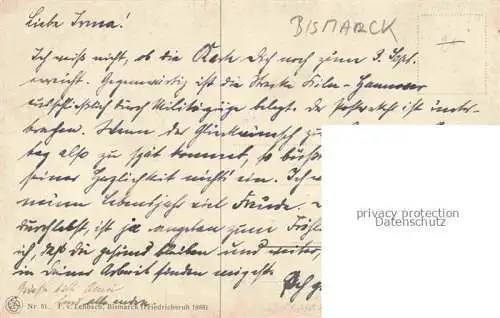 Liebe Irma!
BISMARCK
Ich weiß nicht, ob die Karte Dich noch zum 3. Sept.
erreicht. Gegenwärtig ist die Strecke Köln-Hannover
ausschließlich durch Militärzüge belegt. Der Postverkehr ist unter-
brochen. Wenn der Glückwunsch zu
tag also zu spät kommt, so büßt
seiner Herzlichkeit nichts ein. Ich
neuen Lebensjahr viel Freude.
durchlebst, ist ja angetan zum
ich, daß Du gesund bleiben und weiter,
in Deiner Arbeit finden mögest.
privacy protection
Datenschutz
Nr. 51. F. v. Lenbach, Bismarck (Friedrichsruh 1888)
alle andern